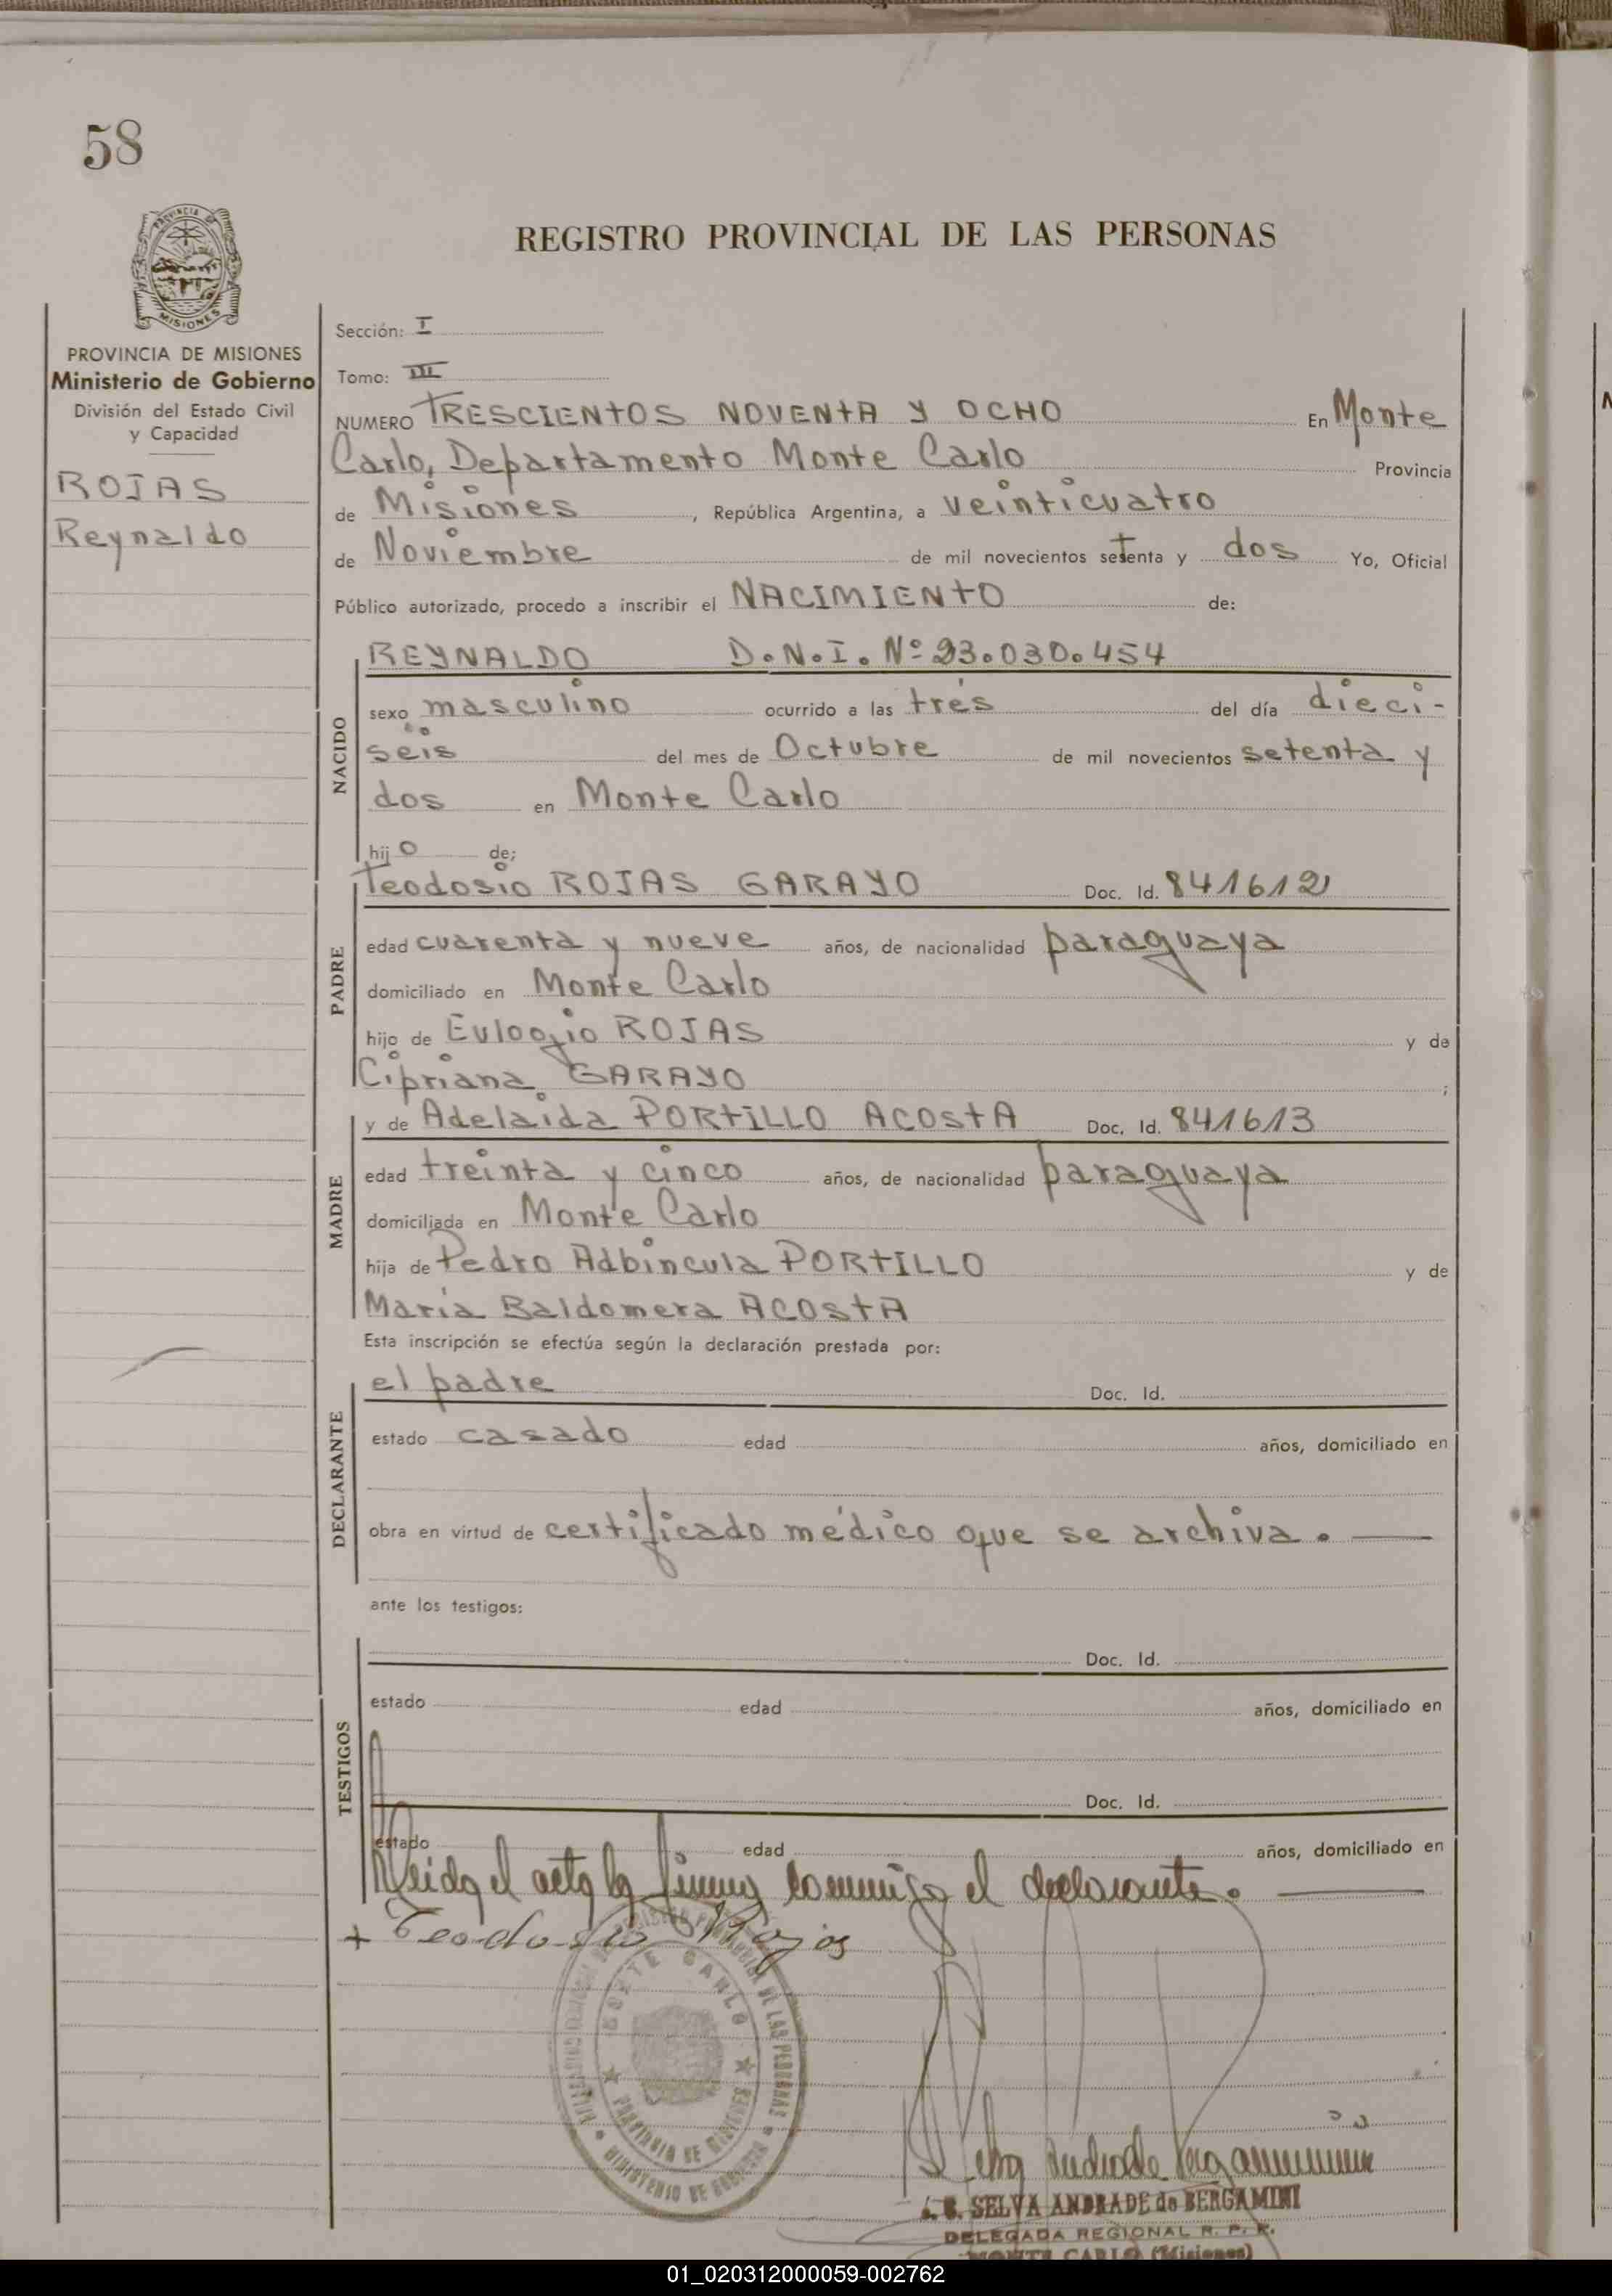 58
REGISTRO PROVINCIAL DE LAS PERSONAS
PROVINCIA DE MISIONES
Ministerio de Gobierno
División del Estado Civil
y Capacidad
ROJAS
Reynaldo
Sección: I
Tomo: III
NUMERO TRESCIENTOS NOVENTA Y OCHO En Monte
Carlo, Departamento Monte Carlo Provincia
de Misiones, República Argentina, a veinticuatro
de Noviembre de mil novecientos setenta y dos Yo, Oficial
Público autorizado, procedo a inscribir el NACIMIENTO de:
NACIDO
REYNALDO D.N.I. Nº 23.030.454
sexo masculino ocurrido a las tres del día dieci-
seis del mes de Octubre de mil novecientos setenta y
dos en Monte Carlo
hijo de;
PADRE
Teodosio ROJAS GARAYO Doc. Id. 841612
edad cuarenta y nueve años, de nacionalidad paraguaya
domiciliado en Monte Carlo
hijo de Eulogio ROJAS y de
Cipriana GARAYO ;
MADRE
y de Adelaida PORTILLO ACOSTA Doc. Id. 841613
edad treinta y cinco años, de nacionalidad paraguaya
domiciliada en Monte Carlo
hija de Pedro Adbincula PORTILLO y de
María Baldomera ACOSTA
Esta inscripción se efectúa según la declaración prestada por:
DECLARANTE
el padre Doc. Id.
estado casado edad años, domiciliado en
obra en virtud de certificado médico que se archiva.
ante los testigos:
TESTIGOS
Doc. Id.
estado edad años, domiciliado en
Doc. Id.
estado edad años, domiciliado en
Leida el acta la firma conmigo el declarante.
+ Teodosio Rojas
MONTE CARLO
PROVINCIA DE MISIONES
MINISTERIO DE GOBIERNO
DE LAS PERSONAS
Selva Andrade Bergamini
SELVA ANDRADE de BERGAMINI
DELEGADA REGIONAL R. P. P.
MONTE CARLO (Misiones)
01_020312000059-002762